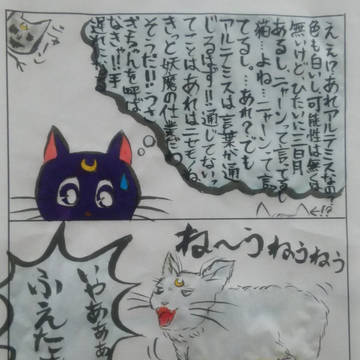 ええ!?あれアルテミスなの?
色も白いし、可能性は無くは
無いけど、ひたいに三日月
あるし、ニャーンって言ってるし
猫…よね…ニャーンって言っ
てるし…あれ?でも
アルテミスは言葉が通
じるはず!!通じてない?
てことはあれはニセモノね
きっと妖魔の仕業だ
そうだ!!うさ
ぎちゃんを呼ば
なきゃ!!手
遅れになる
←!?
ね〜うねうねう
いやあああ
ふえた